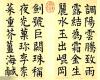 調陽雲騰致雨
露結為霜金生
麗水玉出崐岡
劍號巨闕珠稱
夜光菓珍李柰
菜重芥薑海鹹